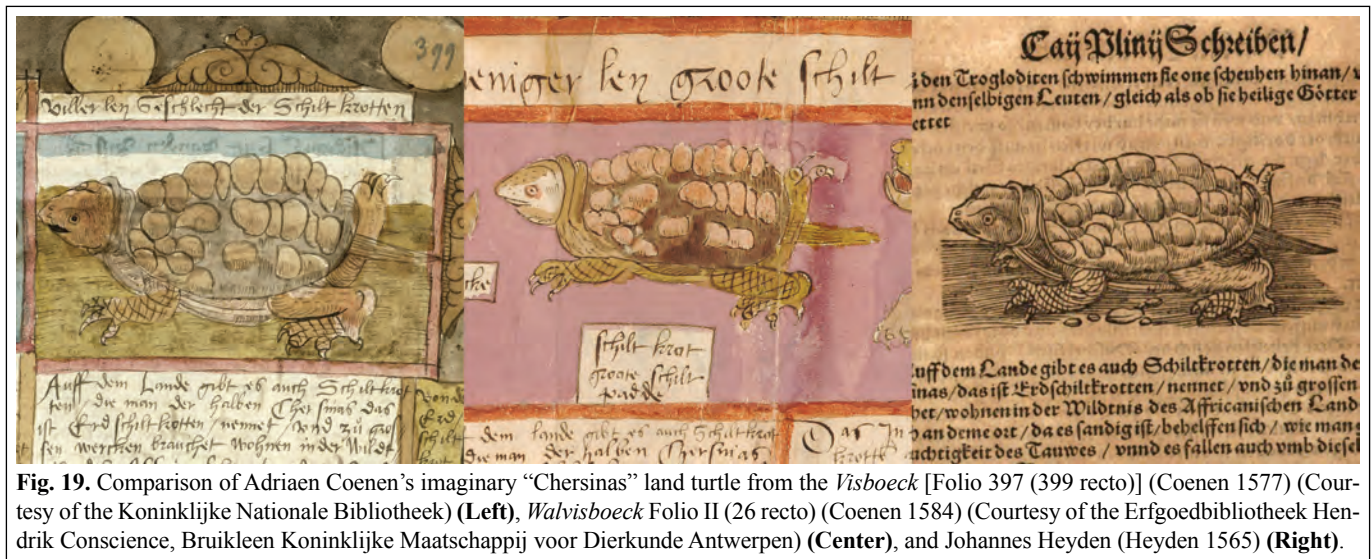 399
Viller ley Geschlecht der Schilt krotten
Auff dem Lande gibt es auch Schiltkrot
ten / die man der halben Chersinas das
ist Erd schilt krotten / nennet / vnd zů gros
sen wercken brauchet wohnen in der Wildt
Erd
schilt
eniger ley groote schilt
schilt krot
groote schilt
padde
dem lande gibt es auch Schiltkrot
die man der halben Chersinas
Caij Plinij Schreiben /
den Trogloditen schwimmen sie one scheuhen hinan /
denselbigen Leuten / gleich als ob sie heilige Götter
ettet
uff dem Lande gibt es auch Schiltkrotten / die man de
inas / das ist Erdschiltkrotten / nennet / vnd zů grossen
bet / wohnen in der Wildtnis des Affricanischen Land
an deme ort / da es sandig ist / behelffen sich / wie man
uchtigkeit des Tauwes / vnnd es fallen auch vmb diesel
Fig. 19. Comparison of Adriaen Coenen’s imaginary “Chersinas” land turtle from the Visboeck [Folio 397 (399 recto)] (Coenen 1577) (Cour-
tesy of the Koninklijke Nationale Bibliotheek) (Left), Walvisboeck Folio II (26 recto) (Coenen 1584) (Courtesy of the Erfgoedbibliotheek Hen-
drik Conscience, Bruikleen Koninklijke Maatschappij voor Dierkunde Antwerpen) (Center), and Johannes Heyden (Heyden 1565) (Right).